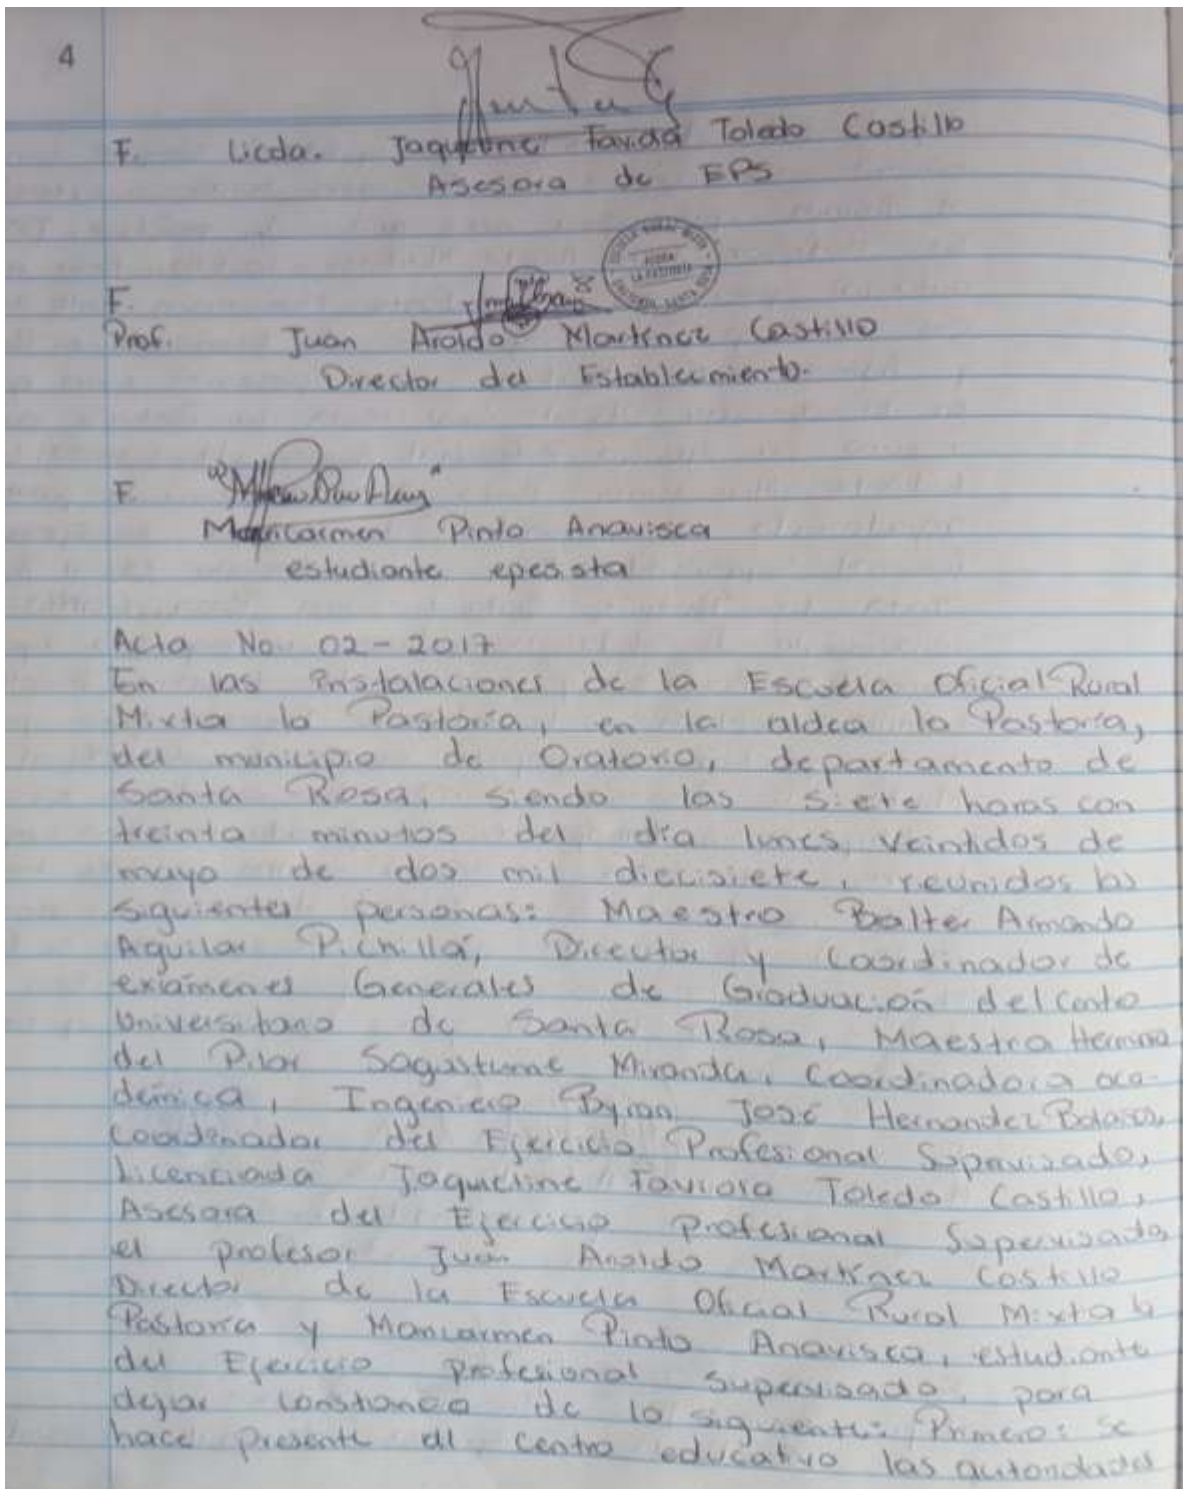 4
F. Licda. Jaqueline Favida Toledo Castillo
Asesora de EPS
LA PASTORÍA
F.
Prof. Juan Aroldo Martínez Castillo
Director del Establecimiento.
F.
Maricarmen Pinto Anavisca
estudiante epesista
Acta No. 02-2017
En las Instalaciones de la Escuela Oficial Rural
Mixta la Pastoría, en la aldea la Pastoría,
del municipio de Oratorio, departamento de
Santa Rosa, siendo las siete horas con
treinta minutos del día lunes veintidos de
mayo de dos mil diecisiete, reunidos las
siguientes personas: Maestro Balter Armando
Aguilar Pichillá, Director y Coordinador de
exámenes Generales de Graduación del Cento
Universitario de Santa Rosa, Maestra
del Pilar Sagastume Miranda, Coordinadora aca-
démica, Ingeniero Byron José Hernandez Bolaños,
Coordinador del Ejercicio Profesional Supervisado,
Licenciada Jaqueline Faviola Toledo Castillo,
Asesora del Ejercicio Profesional Supervisado,
el profesor Juan Aroldo Martínez Castillo
Director de la Escuela Oficial Rural Mixta la
Pastoría y Maricarmen Pinto Anavisca, estudiante
del Ejercicio profesional supervisado, para
dejar constancia de lo siguiente: Primero: se
hace presente al centro educativo las autoridades